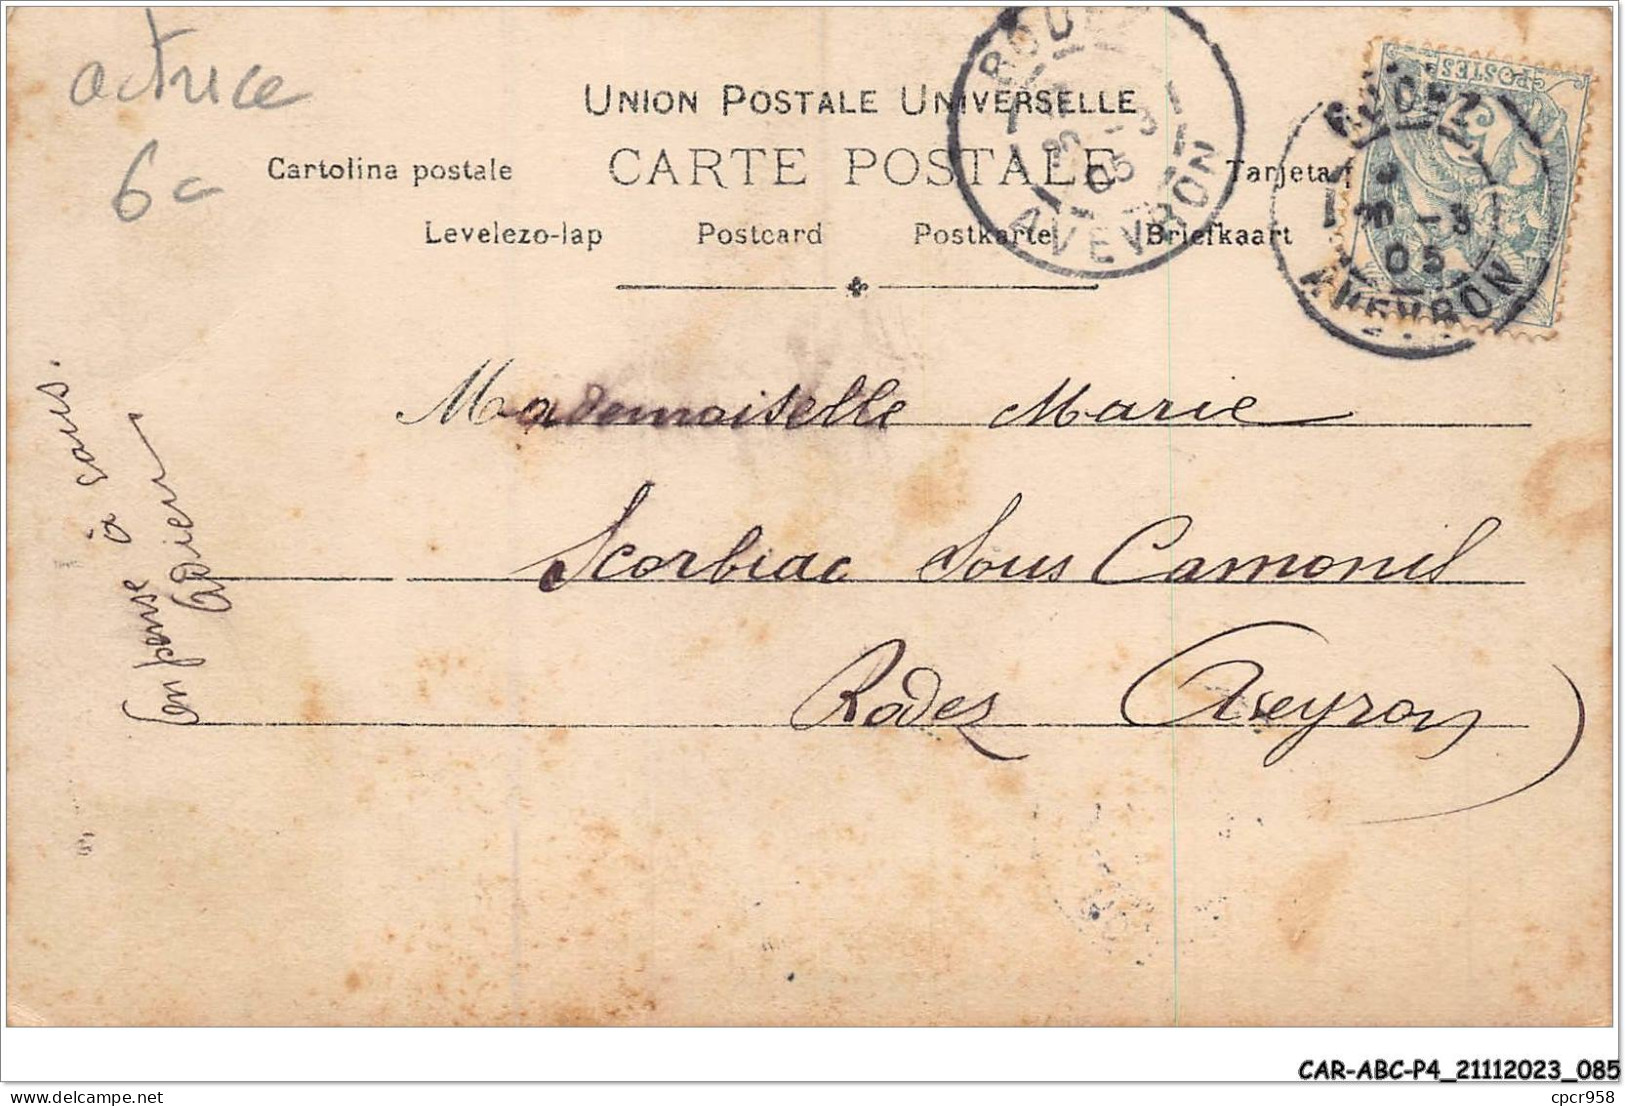 actrice
6c
UNION POSTALE UNIVERSELLE
Cartolina postale CARTE POSTALE Tarjeta
Levelezo-lap Postcard Postkarte Briefkaart
RODEZ
3 -3
05
AVEYRON
POSTES
RODEZ
3 -3
05
AVEYRON
Mademoiselle Marie
Scorbiac Sous Camonil
Rodez Aveyron
en pense à vous.
CAR-ABC-P4_21112023_085
cpcr958